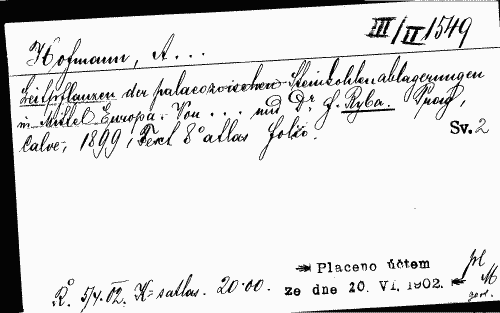 III/II 1549
Hofmann, A...
Leitpflanzen der palaeozoischen Steinkohlenablagerungen
in Mittel Europa. Von ... und Dr. F. Ryba. Prag,
Calve, 1899, Text 8° atlas folio.
Sv. 2
Placeno účtem
ze dne 20. VI. 1902.
R. 5/4. 02. K= s atlas. 20·00.